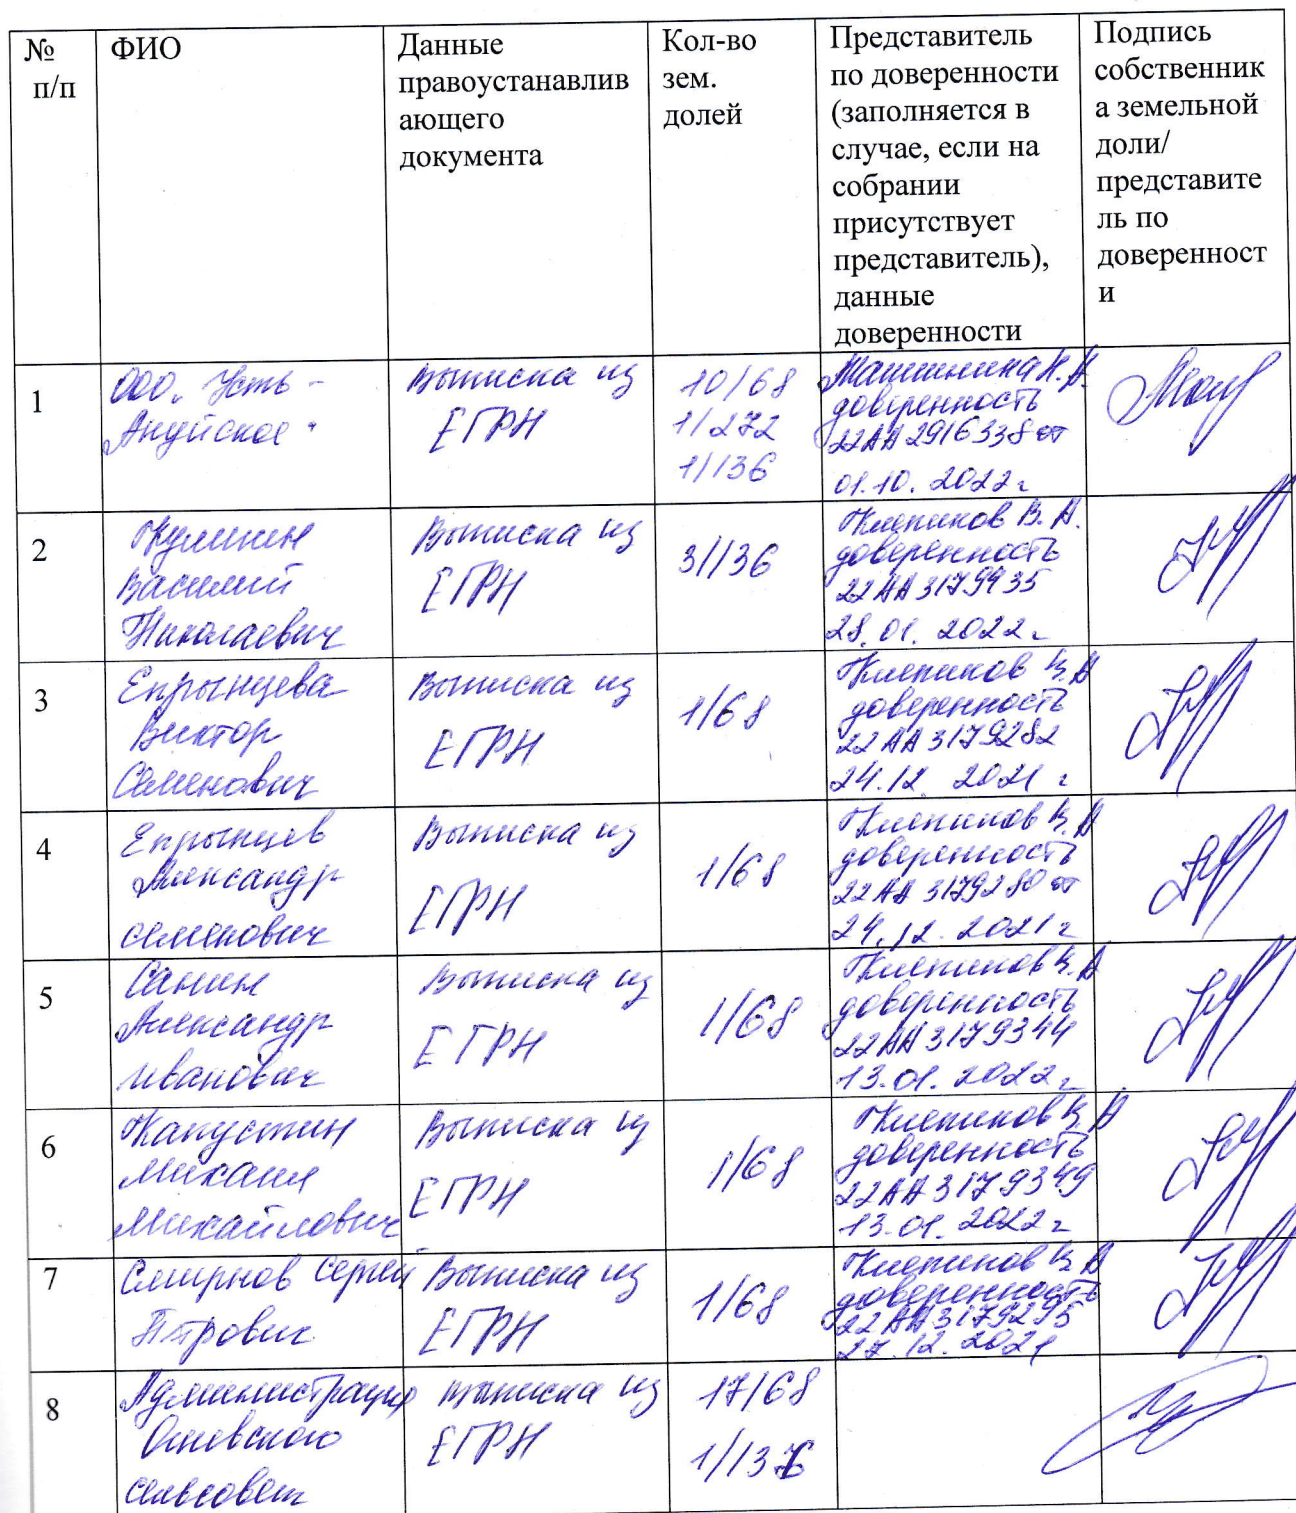 № п/п
ФИО
Данные
правоустанавлив
ающего
документа
Кол-во
зем.
долей
Представитель
по доверенности
(заполняется в
случае, если на
собрании
присутствует
представитель),
данные
доверенности
Подпись
собственник
а земельной
доли/
представите
ль по
доверенност
и
1
ООО "Усть -
Ануйское"
Выписка из
ЕГРН
10/68
1/272
1/136
доверенность
22АА 2916338 от
01.10.2022г
2
Кулинин
Василий
Николаевич
Выписка из
ЕГРН
3/136
Клепиков В. А.
доверенность
22АА 3179935
28.01.2022г
3
Епрынцева
Виктор
Семенович
Выписка из
ЕГРН
1/68
Клепиков В. А
доверенность
22АА 3179282
24.12.2021г
4
Епрынцев
Александр
Семенович
Выписка из
ЕГРН
1/68
Клепиков В. А
доверенность
22АА 3179280 от
24.12.2021г
5
Санин
Александр
Иванович
Выписка из
ЕГРН
1/68
Клепиков В. А
доверенность
22АА 3179344
13.01.2022г
6
Капустин
Михаил
Михайлович
Выписка из
ЕГРН
1/68
Клепиков В. А
доверенность
22АА 3179349
13.01.2022г
7
Смирнов Сергей
Петрович
Выписка из
ЕГРН
1/68
Клепиков В. А
доверенность
22АА 3179295
27.12.2021
8
Администрация
сельсовет
Выписка из
ЕГРН
17/68
1/136